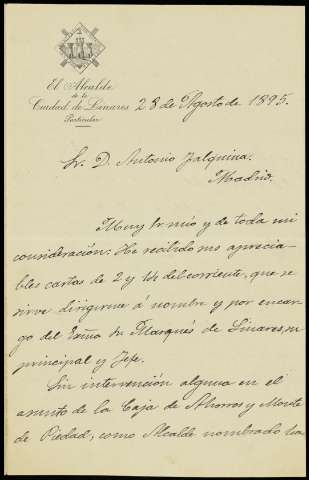 El Alcalde
de la
Ciudad de Linares
Particular
28 de Agosto de 1895.
Sr. D. Antonio Jalquina.
Madrid.
Muy Sr. mío y de toda mi
consideración: He recibido sus aprecia-
bles cartas de 2 y 14 del corriente, que se
sirve dirigirme á nombre y por encar-
go del Exmo Sr Marqués de Linares, su
principal y Jefe.
Sin intervención alguna en el
asunto de la Caja de Ahorros y Monte
de Piedad, como Alcalde nombrado ha